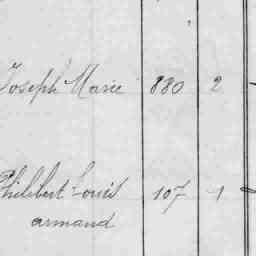 Joseph Marie 880 2
Philibert Louis 107 1
armand